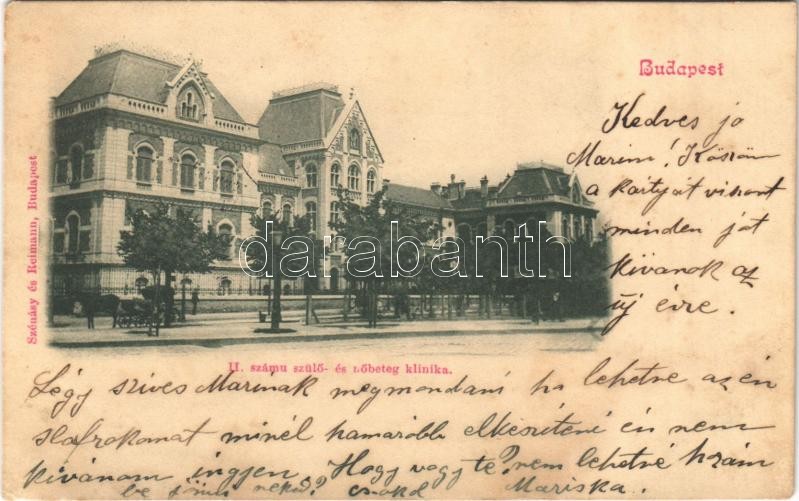 Budapest
Kedves jo
Marim! Köszöm
a kártyát viszont
minden jót
kivánok az
új évre.
Szénásy és Reimann, Budapest
darabanth
II. számu szülő- és nőbeteg klinika.
Légy szives Marinak megmondani ha lehetne az én
slafrokomat minél hamarább elkésziteni én nem
kivánom ingyen. Hogy vagy te? nem lehetne hozám
be jönni neked? csokol Mariska.